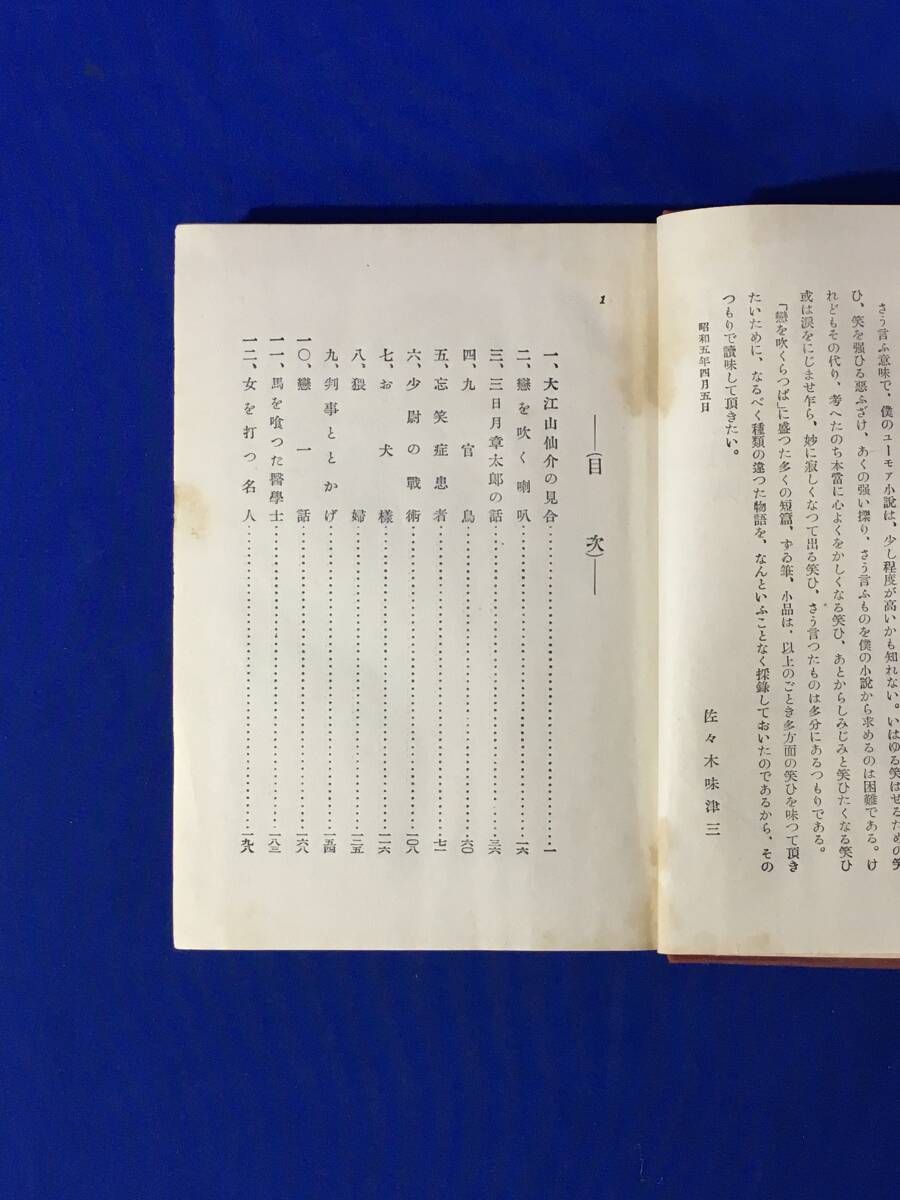 さう言ふ意味で、僕のユーモア小說は、少し程度が高いかも知れない。いはゆる笑はせるための笑
ひ、笑を强ひる惡ふざけ、あくの强い擽り、さう言ふものを僕の小說から求めるのは困難である。け
れどもその代り、考へたのち本當に心よくをかしくなる笑ひ、あとからしみじみと笑ひたくなる笑ひ
或は淚をにじませ乍ら、妙に寂しくなつて出る笑ひ、さう言つたものは多分にあるつもりである。
「戀を吹くらつぱ」に盛つた多くの短篇、ずゐ筆、小品は、以上のごとき多方面の笑ひを味つて頂き
たいために、なるべく種類の違つた物語を、なんといふことなく採錄しておいたのであるから、その
つもりで讀味して頂きたい。
昭和五年四月五日
佐々木味津三
1
――(目次)――
一、大江山仙介の見合……一
二、戀を吹く喇叭……一六
三、三日月章太郎の話……三六
四、九官鳥……六〇
五、忘笑症患者……七一
六、少尉の戰術……一〇八
七、お犬樣……一一六
八、猥婦……一三五
九、判事ととかげ……一五四
一〇、戀一話……一六八
一一、馬を喰つた醫學士……一八三
一二、女を打つ名人……一九八